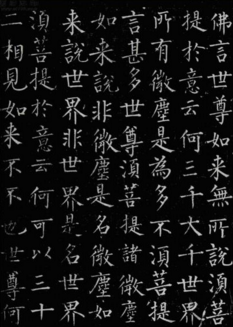 佛言世尊如来無所說須菩
提於意云何三千大千世界
所有微塵是為多不須菩提
言甚多世尊須菩提諸微塵
如来說非微塵是名微塵如
来說世界非世界是名世界
須菩提於意云何可以三十
二相見如来不不也世尊何